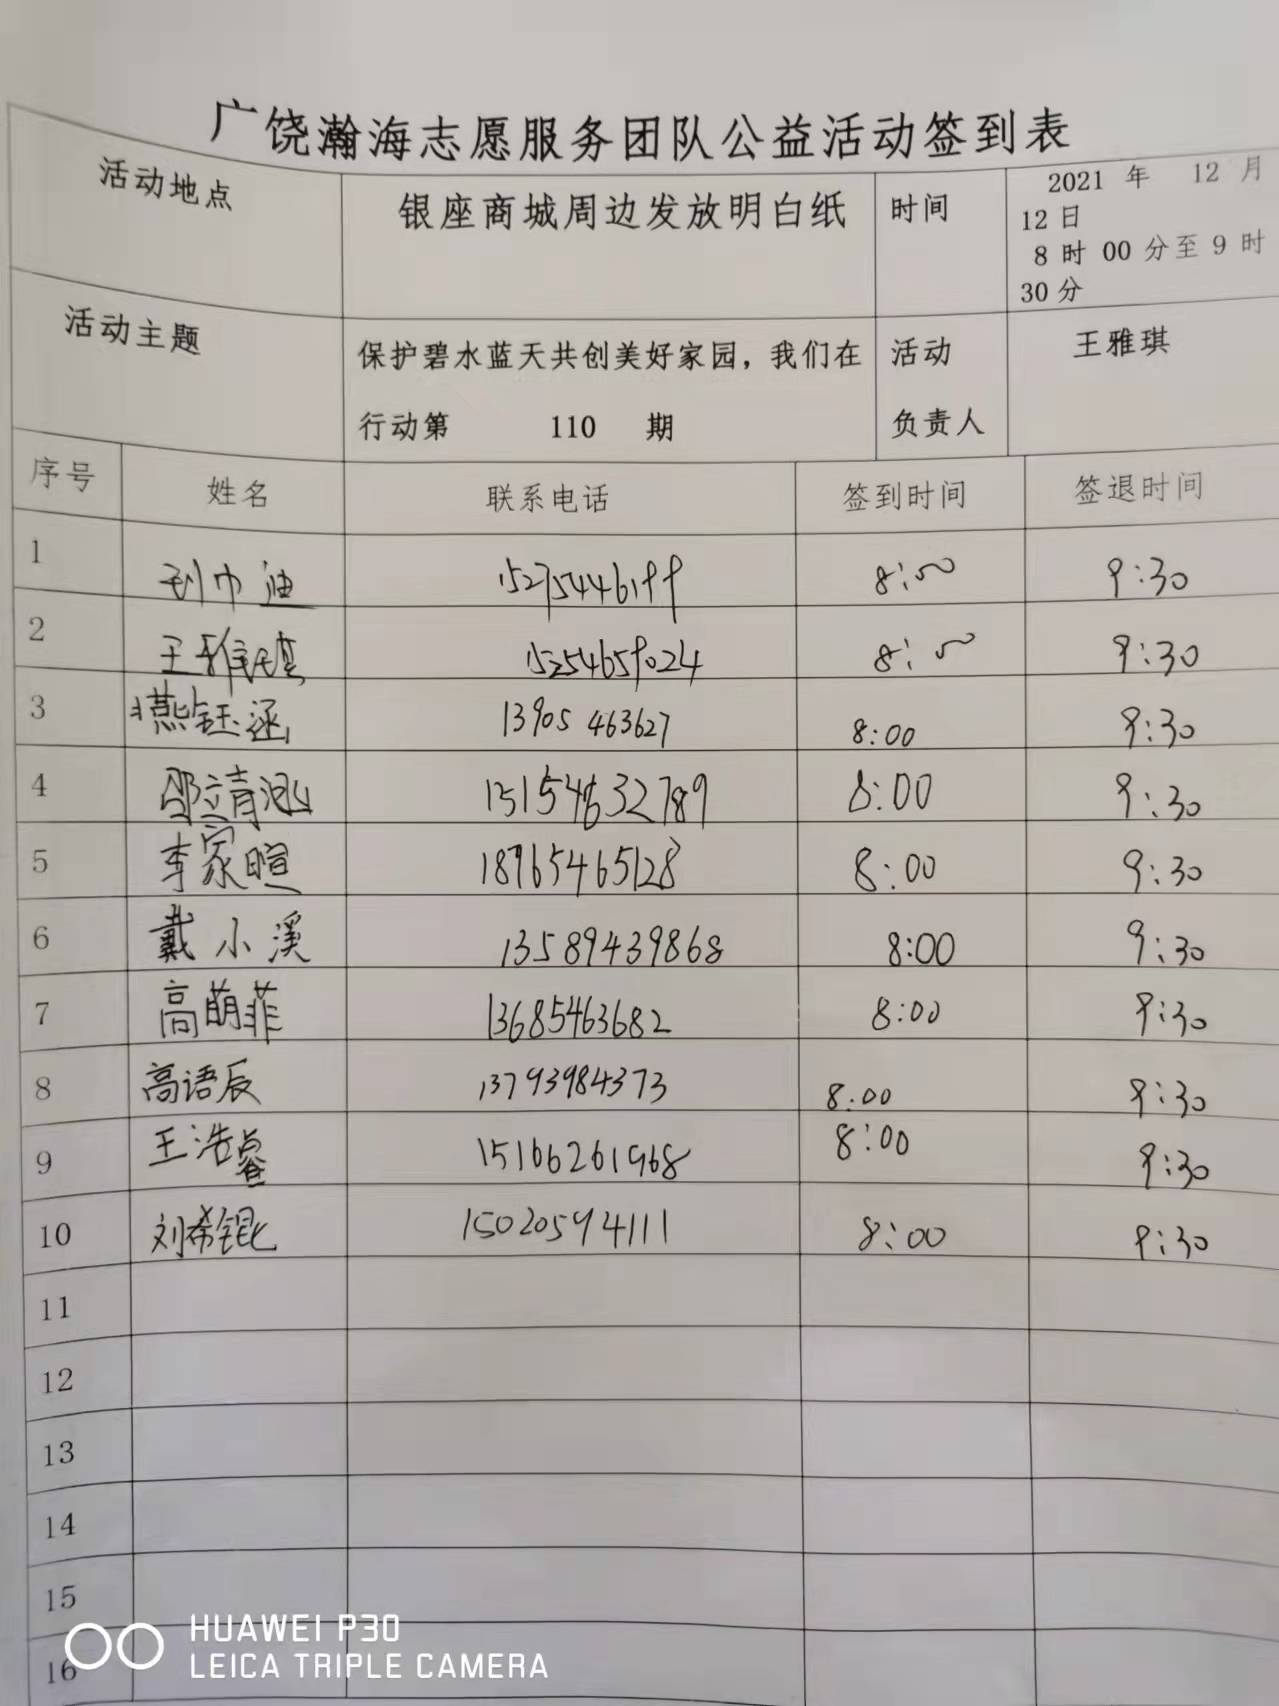 广饶瀚海志愿服务团队公益活动签到表
活动地点 银座商城周边发放明白纸 时间 2021 年 12 月
12 日
8 时 00 分至 9 时
30 分
活动主题 保护碧水蓝天共创美好家园，我们在 活动 王雅琪
行动第 110 期 负责人
序号 姓名 联系电话 签到时间 签退时间
1 8:00 9:30
2 王雅琪 15254659024 8:00 9:30
3 燕钰涵 13905463627 8:00 9:30
4 邵靖涵 15154632789 8:00 9:30
5 李家暄 18765465128 8:00 9:30
6 戴小溪 13589439868 8:00 9:30
7 高萌菲 13685463682 8:00 9:30
8 高语辰 13793984373 8:00 9:30
9 王浩睿 15166261968 8:00 9:30
10 刘希锟 15020594111 8:00 9:30
11
12
13
14
15
16
HUAWEI P30
LEICA TRIPLE CAMERA